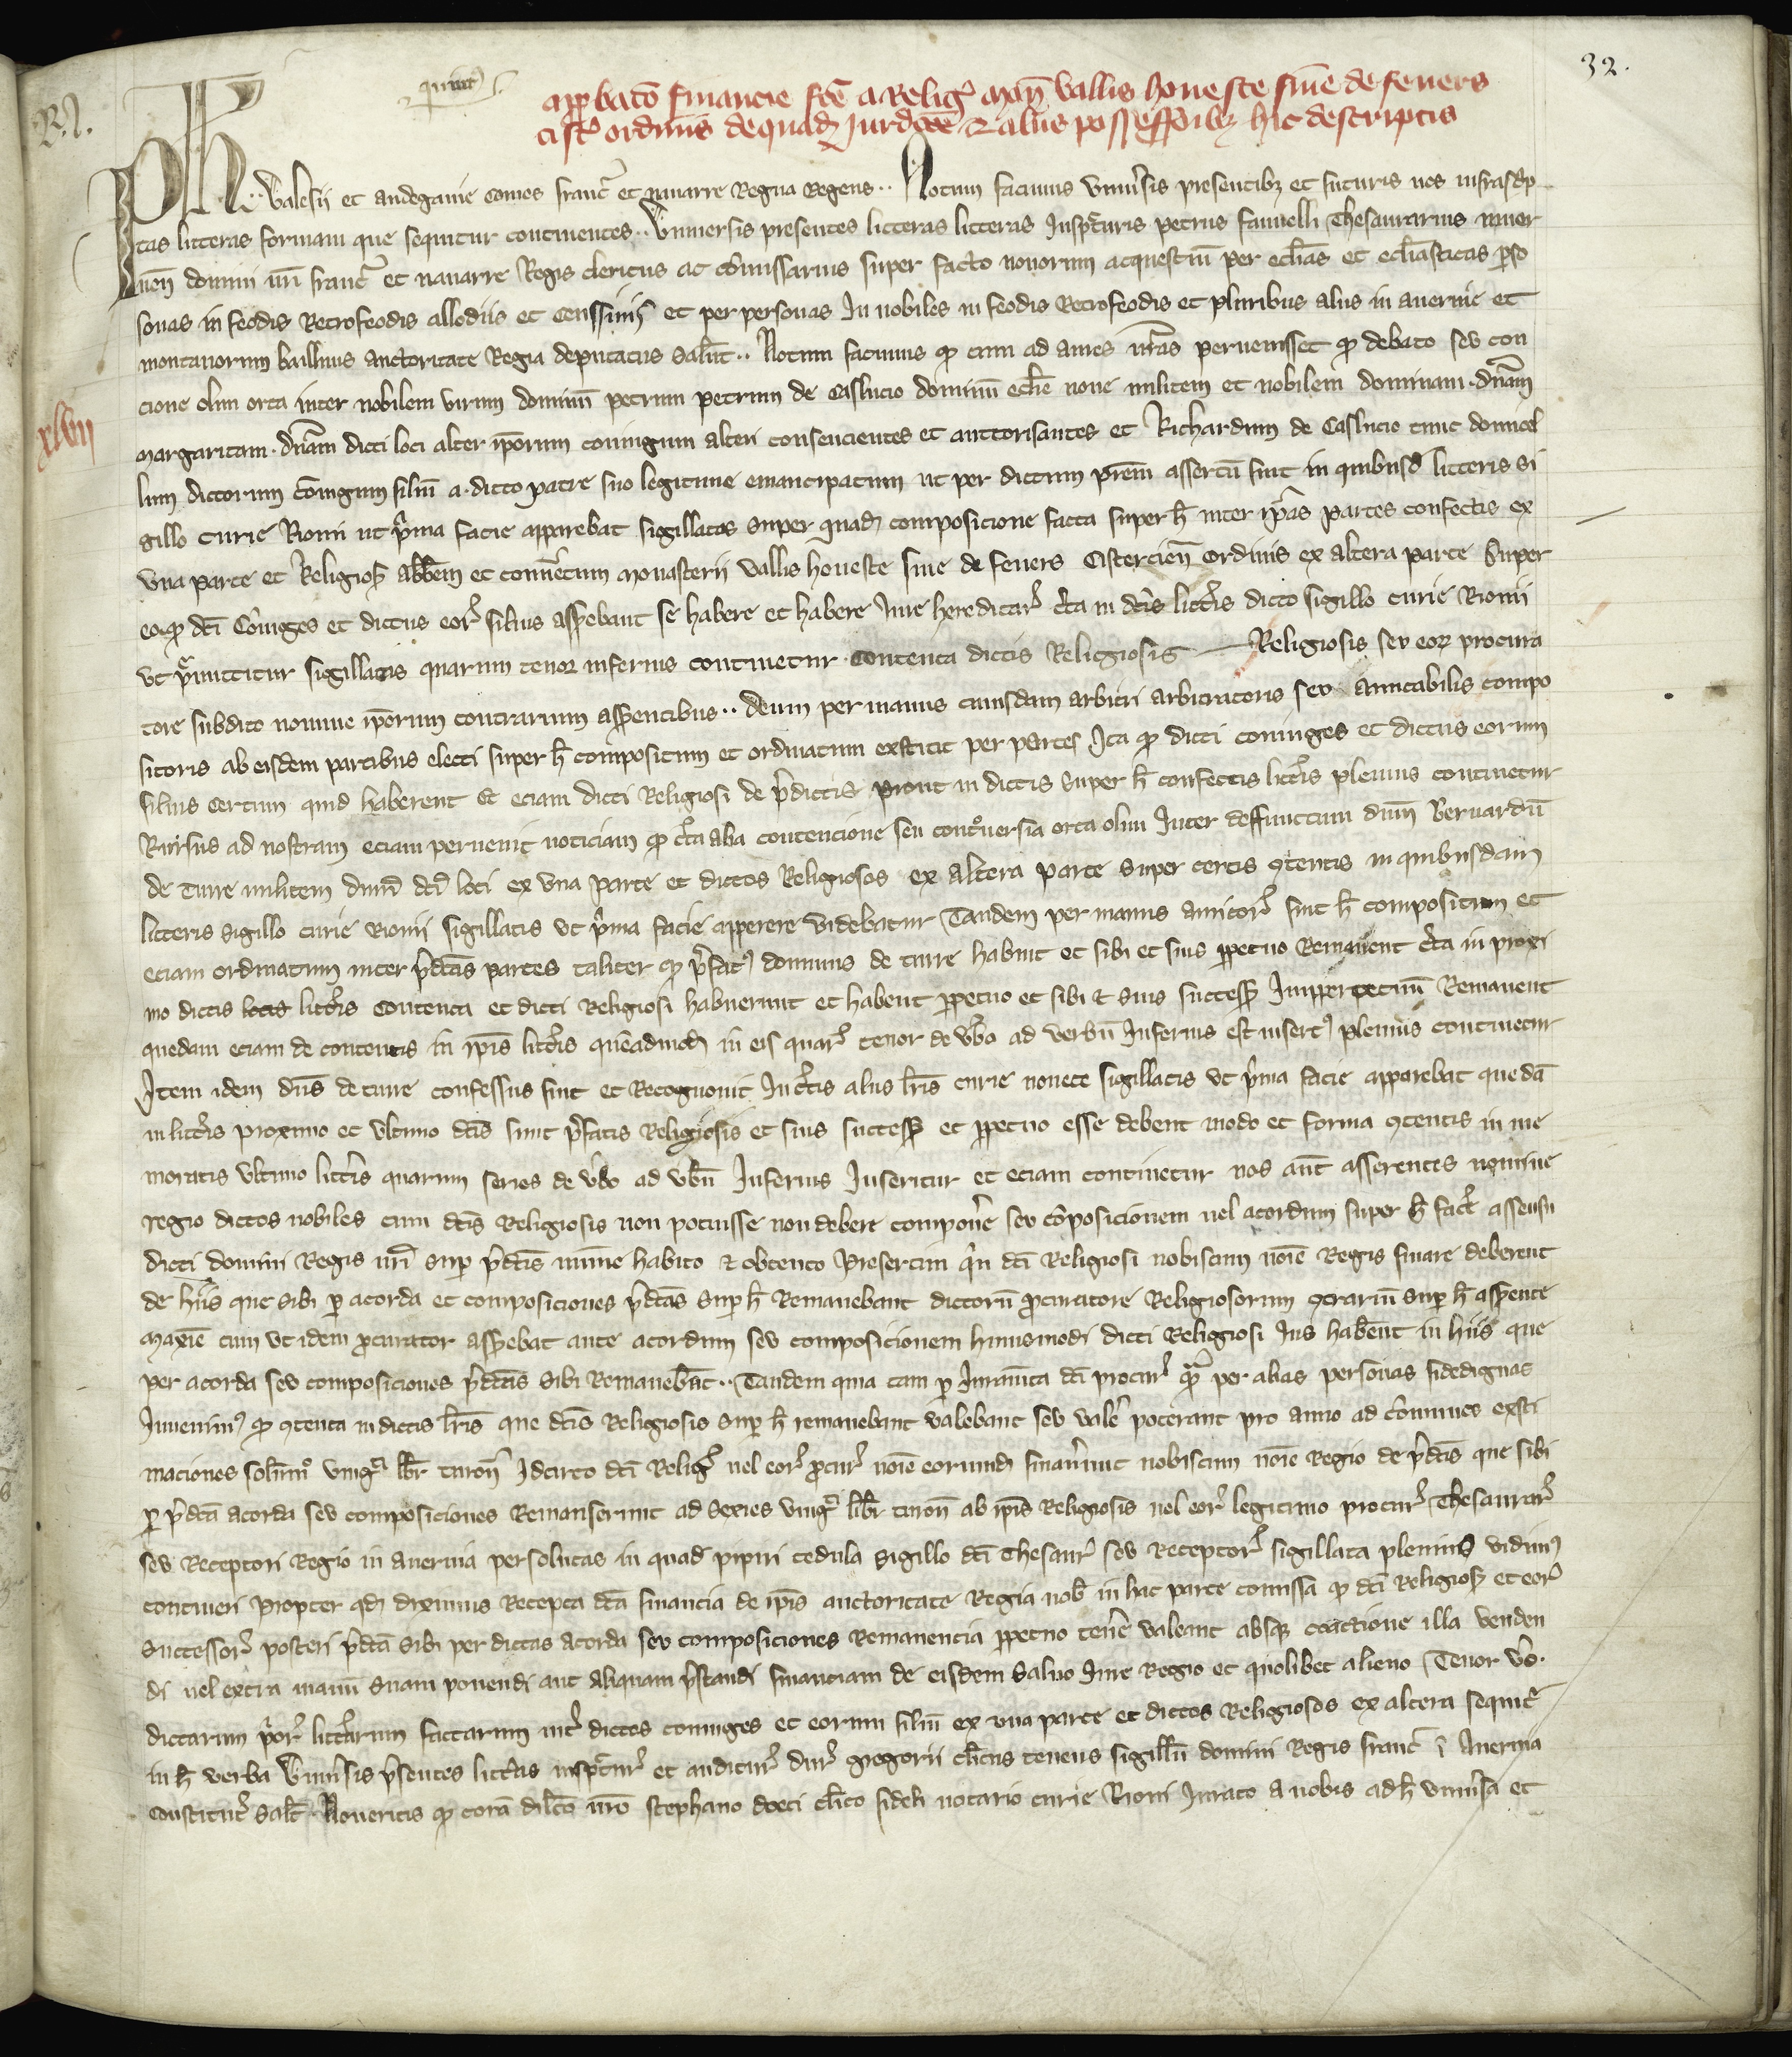 32.
approbacō financie fcē a Relig᷒ mon̄ vallis honeste sive de feners
cist᷒ ordinis de quadꝫ Jurdcōe ⁊ aliis possessioībꝫ hic descriptis
Ph. Valesii et andegavie comes franc᷒ et navarre Regna Regens.. Notum facimus univ̾sis presentibꝫ et futuris nos infrascrip
tas litteras formam que sequitur continentes.. Universis presentes licteras licteras Inspcturis petrus fauvelli Thesaurarius niver
nen̄ domini nr̄i franc᷒ et navarre Regis clericus ac cōmissarius super facto novorum acquestuū per ecl̄ias et ecl̄iasticas perso
sonas in feodis Retrofeodis allodiis et censsivis et per personas In nobiles in feodis Retrofeodis et pluribus aliis in avernie et
montanorum bailliviis auctoritate Regia deputatus Salut̄.. Notum facimus ꝙ cum ad aures nr̄as pervenisset ꝙ debato seu con
cione olim orta inter nobilem virum dominū petrum petrum de Caslucio dominū ecl̄ie nove militem et nobilem dominam. dn̄am
xlvii
Margaritam. dn̄am dicti loci alter ip̄orum coniugum alteri consencientes et auttorisantes et Richardum de Caslucio tunc domicel
lum dictorum cōiugum filiū a. dicto patre suo legitime emancipatum ut per dictum pr̄em assertū fuit in quibusd̄ litteris si
gillo curie Riomi ut p̾ma facie apparebat sigillatas super quadꝫ composicione facta super h̄ inter ip̄as partes confectis ex
una parte et Religios̄ abb̄em et conv̄etum Monasterii vallis honeste sive de feners Cistercien̄ Ordinis ex altera parte Super
eo ꝙ dc̄i Cōiuges et dictus eor᷒ filius asserebant se habere et habere Jure hereditar᷒ c̄ta in dc̄is litt̄is dicto sigillo curie Riomi
ut p̾mittitur sigillatis quarum tenor inferius continetur contenta dictis Religiosis Religiosis seu eorꝫ procura
tore subdito nomine ip̄orum contrarium asserentibus.. demum per manus cuiusdam arbitri arbitratoris seu Amicabilis compo
sitoris ab eisdem partibus electi super h̄ compositum et ordinatum exstitit per partes Ita ꝙ dicti coniuges et dictus eorum
filius certum quid haberent Et eciam dicti Religiosi de p̄dictis prout in dictis super h̄ confectis litt̄is plenius continetur
Rursus ad nostram eciam pervenit noticiam ꝙ c̄ta alia contencione seu cont̾versia orta olim Inter deffunctum dn̄m Bernardū
de Turre militem dn̄m dc̄i loci ex una parte et dictos Religiosos ex altera parte super certis 9tentis in quibusdam
litteris sigillo curie Riomi sigillatis ut p̾ma facie apperere videbatur Tandem per manus amicor᷒ fuit h̄ compositum et
eciam ordinatum inter p̄dc̄as partes taliter ꝙ p̄fatꝰ dominus de turre habuit et sibi et suis ꝑpetuo Remanent c̄ta in proxi
mo dictis locis litt̄is contenta et dicti Religiosi habuerunt et habent ꝑpetuo et sibi ⁊ suis success̄ Imppertetuū Remanent
quedam eciam de contentis in ip̄is litt̄is quēadmodꝫ in eis quar᷒ tenor de v̄bo ad verbū Inferius est insertꝰ plenius continetur
Item idem dn̄s de turre confessus fuit et Recognovit In c̄tis aliis lr̄is curie nonete sigillatis ut p̾ma facie apparebat quedā
in litt̄is proximo et ultimo dc̄is sunt p̄fatis Religiosis et suis success̄ et ꝑpetuo esse debent modo et forma 9tentis in me
moratis ultimo litt̄is quarum series de v̄bo ad vb̄ū Inferius Inseritur et eciam continetur nos aūt asserentes nomine
regio dictos nobiles cum dc̄is Religiosis non potuisse non debere compon̄e seu cōposicionem vel acordum super h̄ fac̄e assensu
dicti domini Regis nr̄i sup̄ p̄dc̄is mīme habito ⁊ obtento Presertim qn̄ dc̄i Religiosi nobiscum noīe Regis finare deberent
de hiis que sibi ꝑ acorda et composiciones p̄dc̄as sup̄ h̄ Remanebant dictorū procuratore Religiosorum 9trariū sup̄ h̄ asserente
Maxīe cum ut idem procurator asserebat ante acordum seu composicionem huiusmodi dicti Religiosi Jus haberent in hiis que
per acorda seu composiciones p̄dc̄as sibi Remanebāt.. Tandem quia tam ꝑ Iuramēta dc̄i procur᷒ qm̄ per alias personas fidedignas
Invenimꝰ ꝙ 9tenta in dictis lr̄is que dc̄is Religiosis sup̄ h̄ remanebant valebant seu valē poterant pro anno ad cōmunes exsti
maciones solūmo᷒ viginti libr̄ turon̄ Idcirco dc̄i Relig᷒ vel eor᷒ procur᷒ noīe eorumdꝫ finaverunt nobiscum noīe Regio de p̄dc̄is que sibi
ꝑ p̄dc̄a acorda seu composiciones Remanserunt ad sexies viginti libr̄ turon̄ ab ip̄is Religiosis vel eor᷒ legitimo procur᷒ Thesaurar᷒
seu Receptori Regio in avernia persolutas in quadꝫ pipiri cedula sigillo dc̄i Thesaur᷒ seu Receptor᷒ sigillata plenius vidimꝰ
contineri Propter qd̄ diximus Recepta dc̄a financia de ip̄is auctoritate Regia nob̄ in hac parte comissa ꝙ dc̄i Religios̄ et eor᷒
Successor᷒ posteri p̄dc̄a sibi per dictas acorda seu composiciones Remanencia ꝑpetuo ten̄e valeant absqꝫ coactione illa venden
di vel extra manū suam ponendi aut aliquam p̄standi financiam de eisdem Salvo Jure Regio et quolibet alieno Tenor v̄o.
dictarum p̾or᷒ litt̄arum factarum int̄ dictos coniuges et eorum filiū ex una parte et dictos Religiosos ex altera sequit᷒
in h̄ verba Univ̾sis p̄sentes litt̄as inspctur᷒ et auditur᷒ dur᷒ Gregorii cl̄icus tenens sigillū domini Regis franc᷒ ī Avernia
constitut᷒ salt̄. Noveritis ꝙ corā dil̄co nr̄o stephano doeci cl̄ico fideli notario curie Riomi Jurato a nobis ad h̄ univ̾sa et